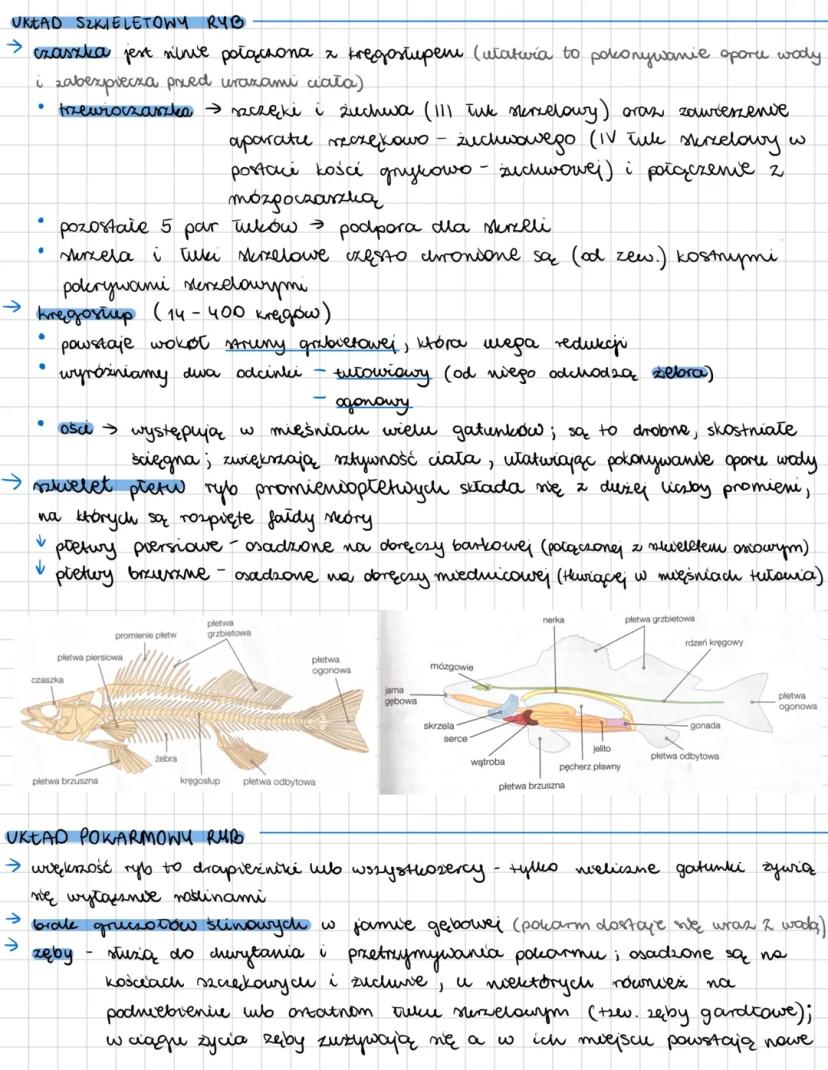 UKŁAD SZKIELETOWY RYB
→ czaszka jest silnie połączona z kręgosłupem (ułatwia to pokonywanie oporu wody
i zabezpiecza przed urazami ciała)
• trzewioczaszka → szczęki i żuchwa (III łuk skrzelowy) oraz zawieszenie
aparatu szczękowo - żuchwowego (IV łuk skrzelowy w
postaci kości gnykowo - żuchwowej) i połączenie z
mózgoczaszką
• pozostałe 5 par łuków → podpora dla skrzeli
• skrzela i łuki skrzelowe często chronione są (od zew.) kostnymi
pokrywami skrzelowymi
→ kręgosłup (14 - 400 kręgów)
• powstaje wokół struny grzbietowej, która ulega redukcji
• wyróżniamy dwa odcinki - tułowiowy (od niego odchodzą żebra)
- ogonowy
• ości → występują w mięśniach wielu gatunków; są to drobne, skostniałe
ścięgna; zwiększają sztywność ciała, ułatwiając pokonywanie oporu wody
→ szkielet płetw ryb promieniopłetwych składa się z dużej liczby promieni,
na których są rozpięte fałdy skóry
↓ płetwy piersiowe - osadzone na obręczy barkowej (połączonej z szkieletem osiowym)
↓ płetwy brzuszne - osadzone na obręczy miednicowej (tkwiącej w mięśniach tułowia)
płetwa
grzbietowa
promienie płetw
płetwa piersiowa
czaszka
płetwa
ogonowa
żebra
płetwa brzuszna
kręgosłup
płetwa odbytowa
nerka
płetwa grzbietowa
rdzeń kręgowy
mózgowie
jama
gębowa
płetwa
ogonowa
skrzela
serce
gonada
wątroba
jelito
pęcherz pławny
płetwa odbytowa
płetwa brzuszna
UKŁAD POKARMOWY RYB
→ większość ryb to drapieżniki lub wszystkożercy - tylko nieliczne gatunki żywią
się wyłącznie roślinami
→ brak gruczołów ślinowych w jamie gębowej (pokarm dostaje się wraz z wodą)
→ zęby - służą do chwytania i przetrzymywania pokarmu; osadzone są na
kościach szczękowych i żuchwie, u niektórych również na
podniebieniu lub ostatnim łuku skrzelowym (tzw. zęby gardłowe);
w ciągu życia zęby zużywają się a w ich miejscu powstają nowe